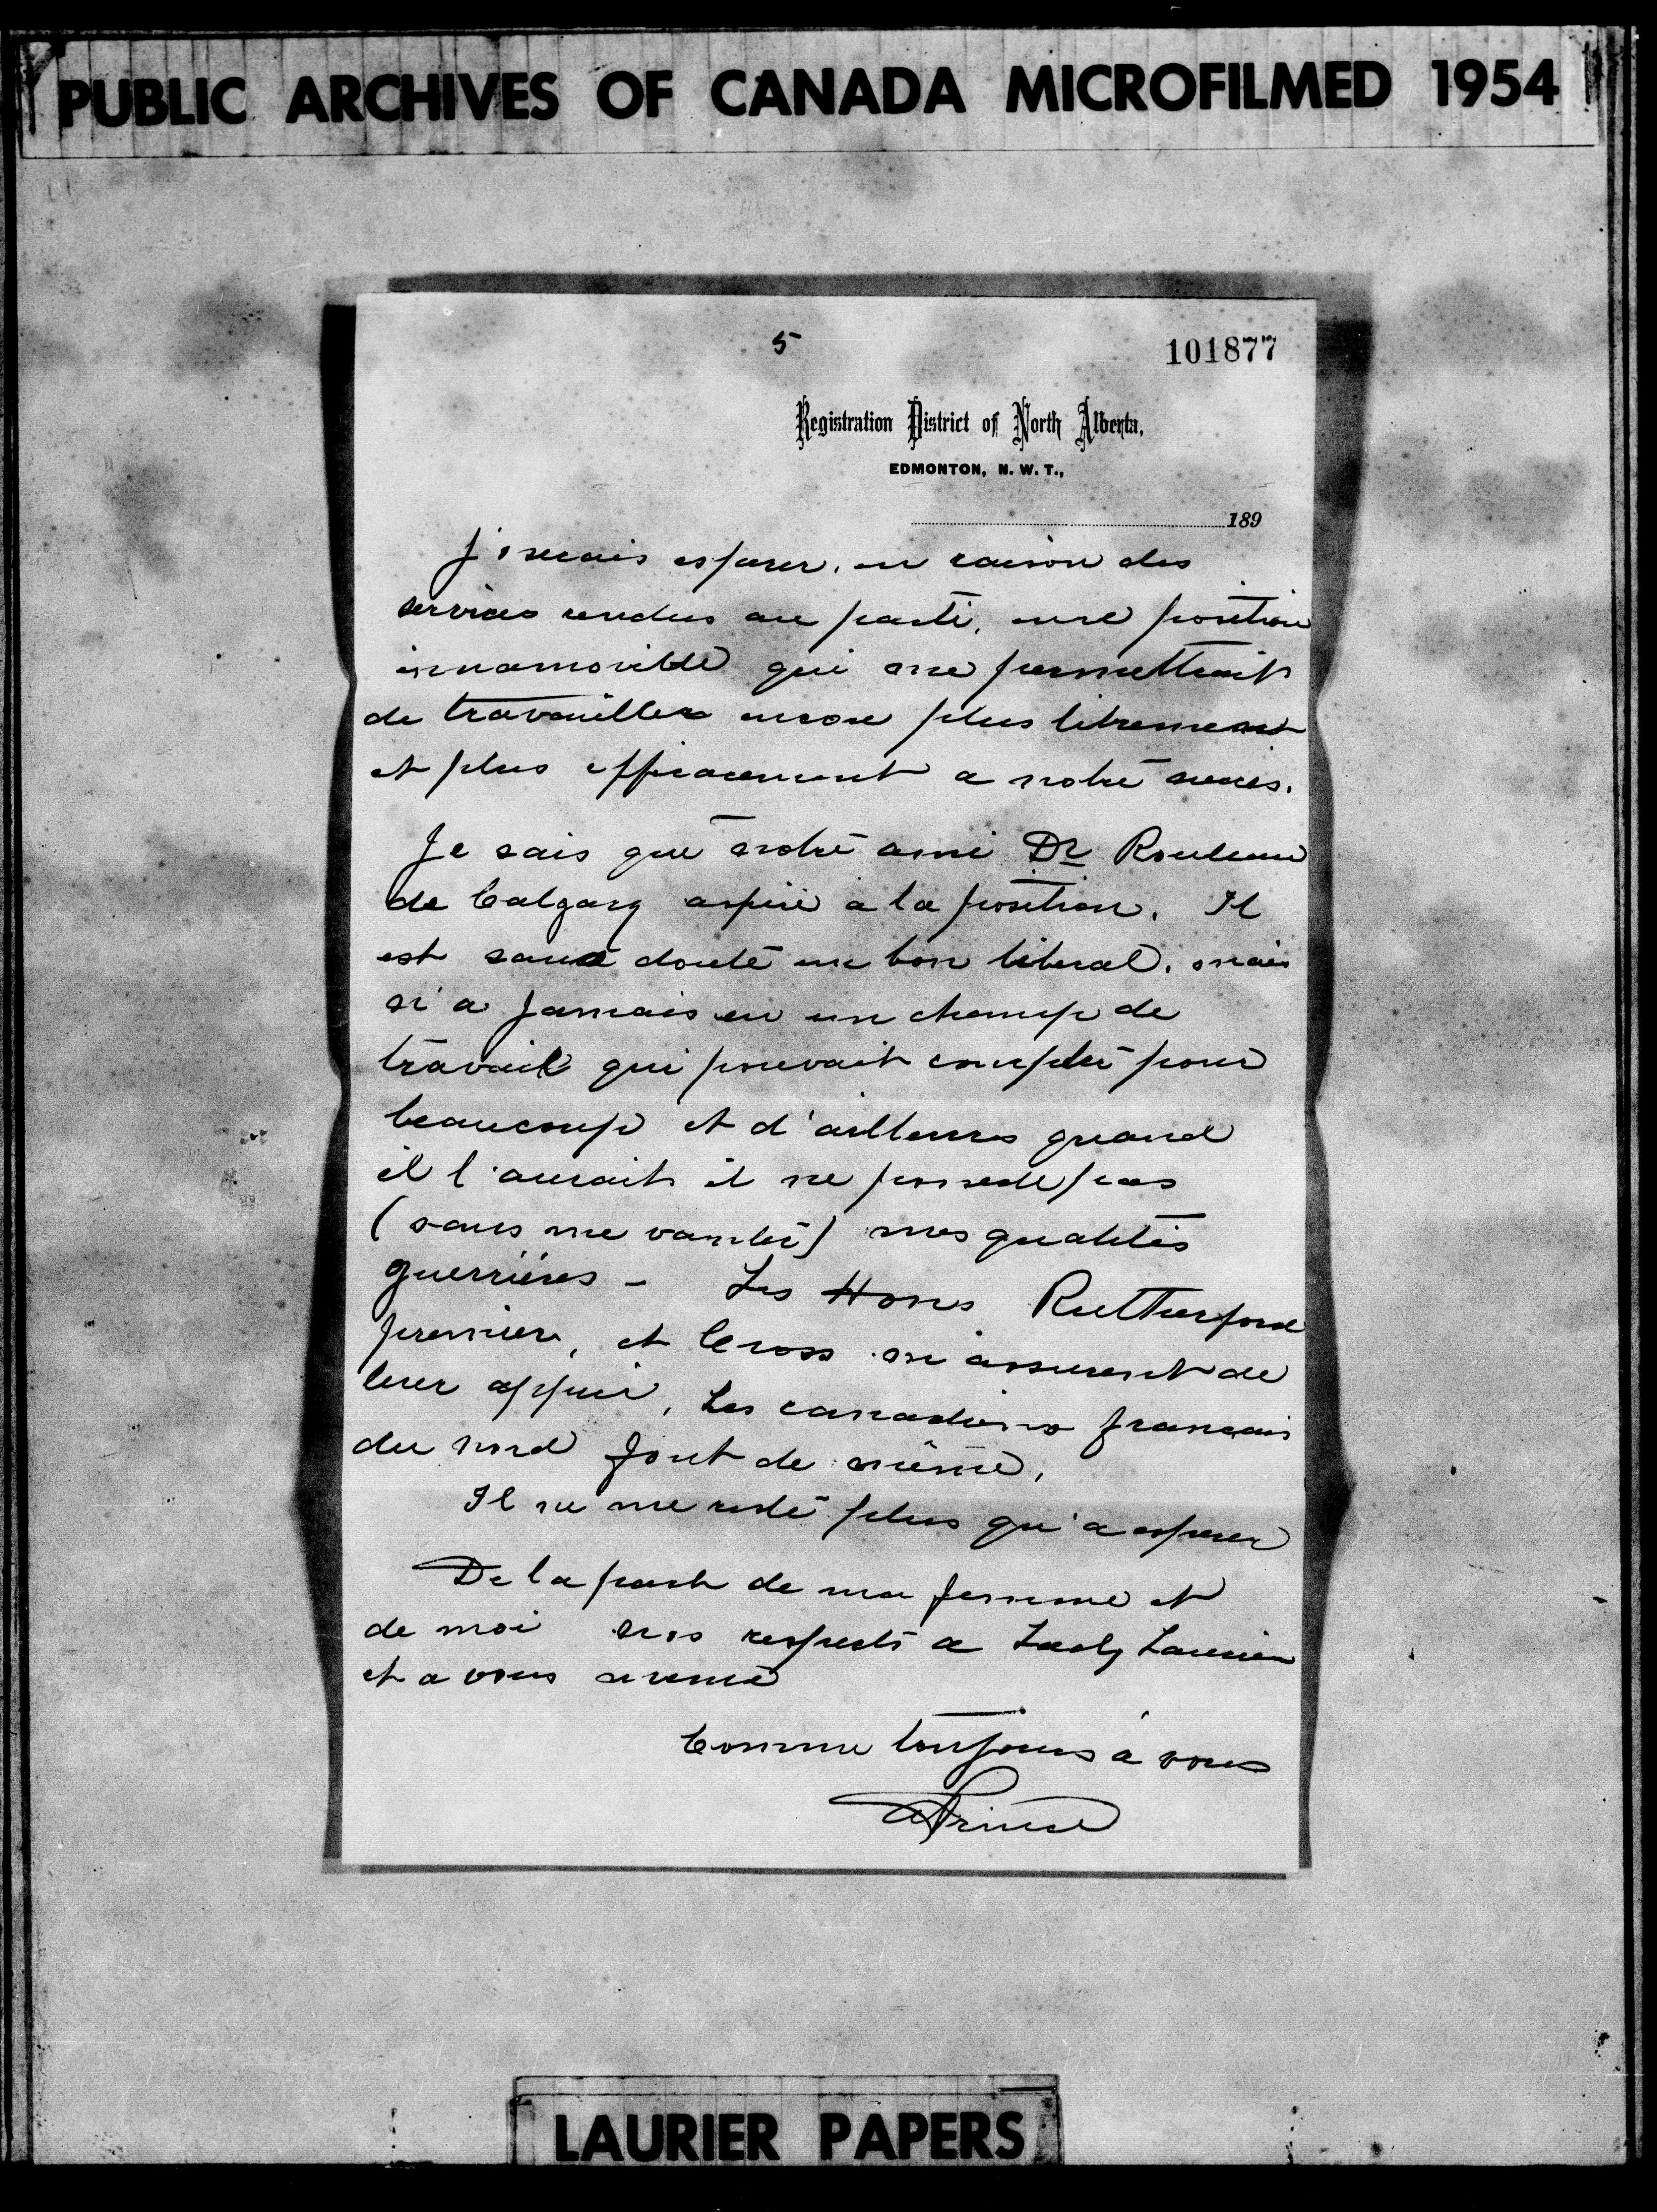 PUBLIC ARCHIVES OF CANADA MICROFILMED 1954
5
101877
Registration District of North Alberta,
EDMONTON, N. W. T.,
189
J'oserais esperer, en raison des
services rendus au parti, une position
innamovible qui me permettrait
de travailler encore plus librement
et plus efficacement a notre succes.
Je sais que notre ami Dr Rouleau
de Calgary aspire a la position. Il
est sans doute un bon liberal, mais
n'a jamais eu un champ de
travail qui pouvait compter pour
beaucoup et d'ailleurs quand
il l'aurait il ne possede pas
(sans me vanter) mes qualités
guerrières - Les Hons Rutherford
premier, et Cross m'assurent de
leur appui, Les canadiens francais
du nord font de même,
Il ne me reste plus qu'a esperer
De la part de ma femme et
de moi nos respects a Lady Laurier
et a vous meme
Comme toujours à vous
A Prince
LAURIER PAPERS